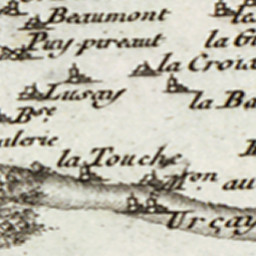 Beaumont
Puy-pireaut
la Croix
Lusay
la Ba
Bse
la Touche
Mon au
Urçay